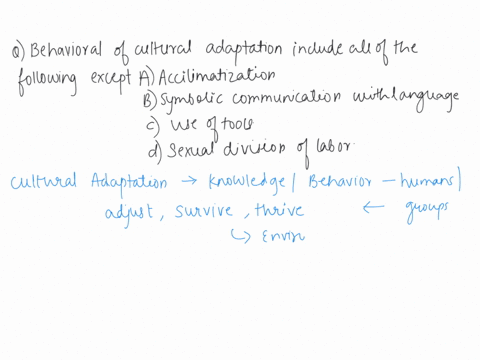 Q) Behavioral of cultural adaptation include all of the
following except A) Accilimatization
B) Symbolic communication with language
c) use of tools
d) Sexual division of labor
Cultural Adaptation → Knowledge / Behavior – humans /
adjust, survive, thrive ← groups
↳ Envin